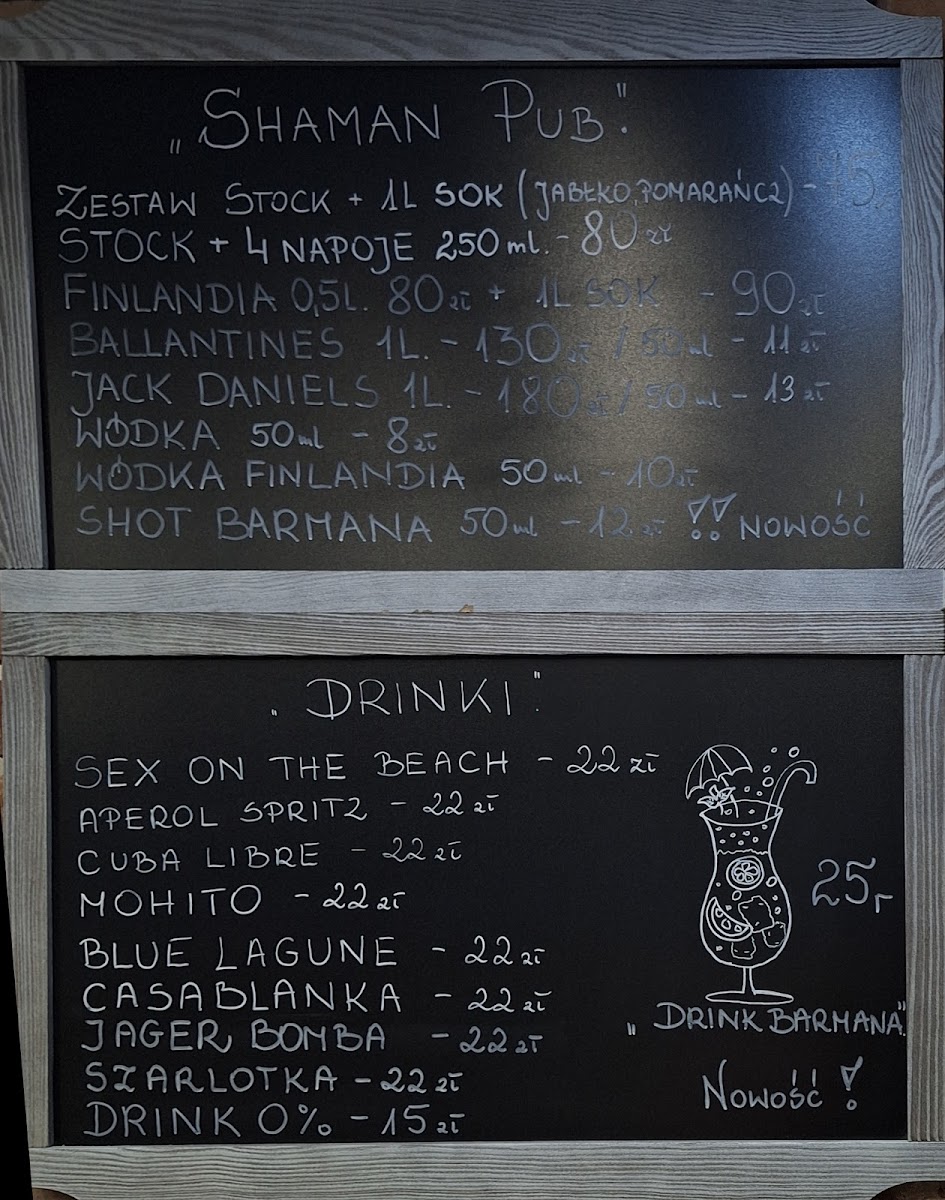 „SHAMAN PUB".
ZESTAW STOCK + 1L SOK (JABŁKO, POMARAŃCZ) - 75.
STOCK + 4 NAPOJE 250 ml. - 80 zł
FINLANDIA 0,5L. 80 zł + 1L SOK - 90 zł
BALLANTINES 1L. - 130 zł / 50 ml - 11 zł
JACK DANIELS 1L. - 180 zł / 50 ml - 13 zł
WÓDKA 50 ml - 8 zł
WÓDKA FINLANDIA 50 ml - 10 zł
SHOT BARMANA 50 ml - 12. zł !! NOWOŚĆ
„DRINKI".
SEX ON THE BEACH - 22 zł
APEROL SPRITZ - 22 zł
CUBA LIBRE - 22 zł
MOHITO - 22 zł
BLUE LAGUNE - 22 zł
CASABLANKA - 22 zł
JAGER BOMBA - 22 zł
SZARLOTKA - 22 zł
DRINK 0% - 15 zł
25,-
„DRINK BARMANA".
NOWOŚĆ !